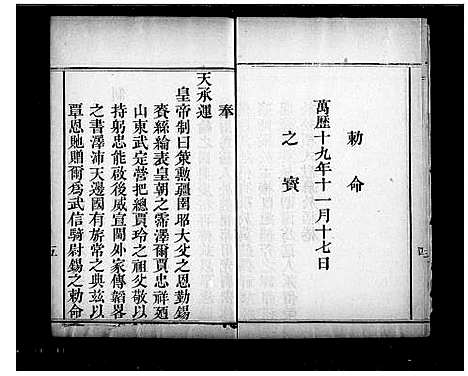 勅命
萬歴十九年十一月十七日
之寳
奉
天承運
皇帝制曰策勲疆圉耶大父之恩勤錫
賚絲綸表皇朝之霈澤爾賈忠祥廼
山東武定營把總賈玲之祖父敬以
持躬忠能啟後威宣閫外家傳韜畧
之書澤沛天邊國有旂常之典茲以
覃恩貤贈爾爲武信騎尉錫之勅命
五